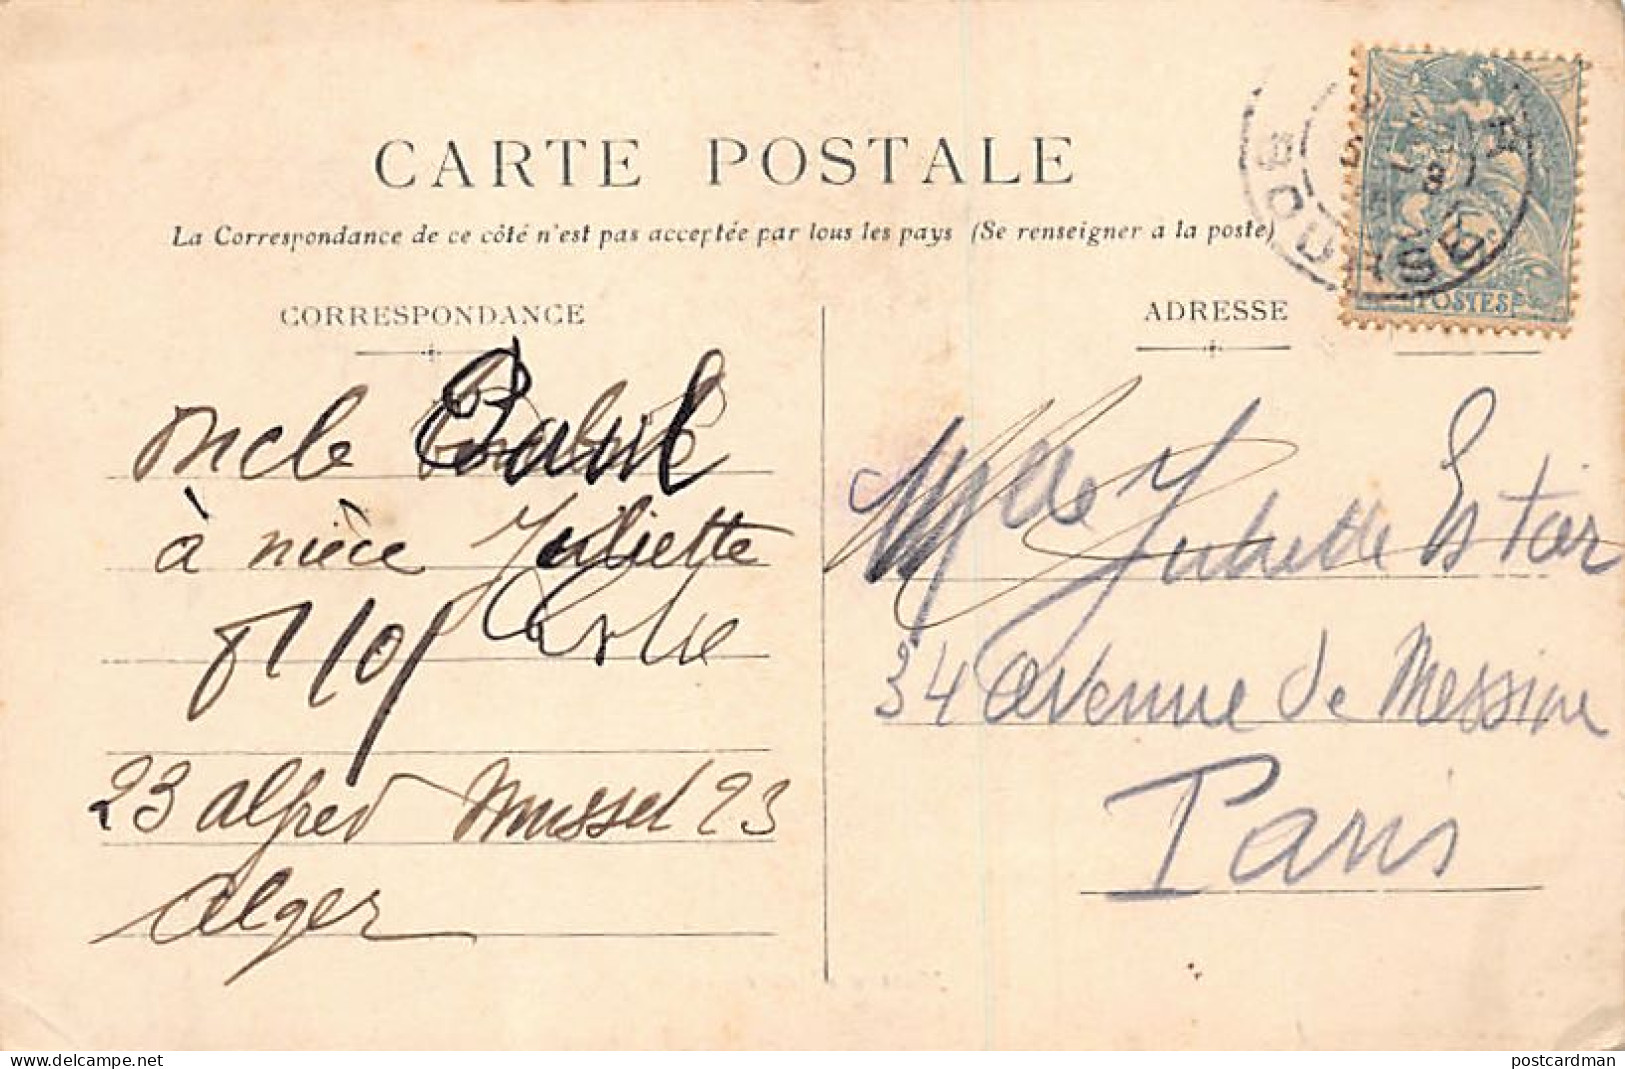 CARTE POSTALE
La Correspondance de ce côté n'est pas acceptée par tous les pays (Se renseigner à la poste)
CORRESPONDANCE
oncle Paul
à nièce Juliette
23 alfred musset 23
Alger
ADRESSE
Mlle Juliette
34 avenue de Messine
Paris
POSTES
BOURSE
postcardman
delcampe.net